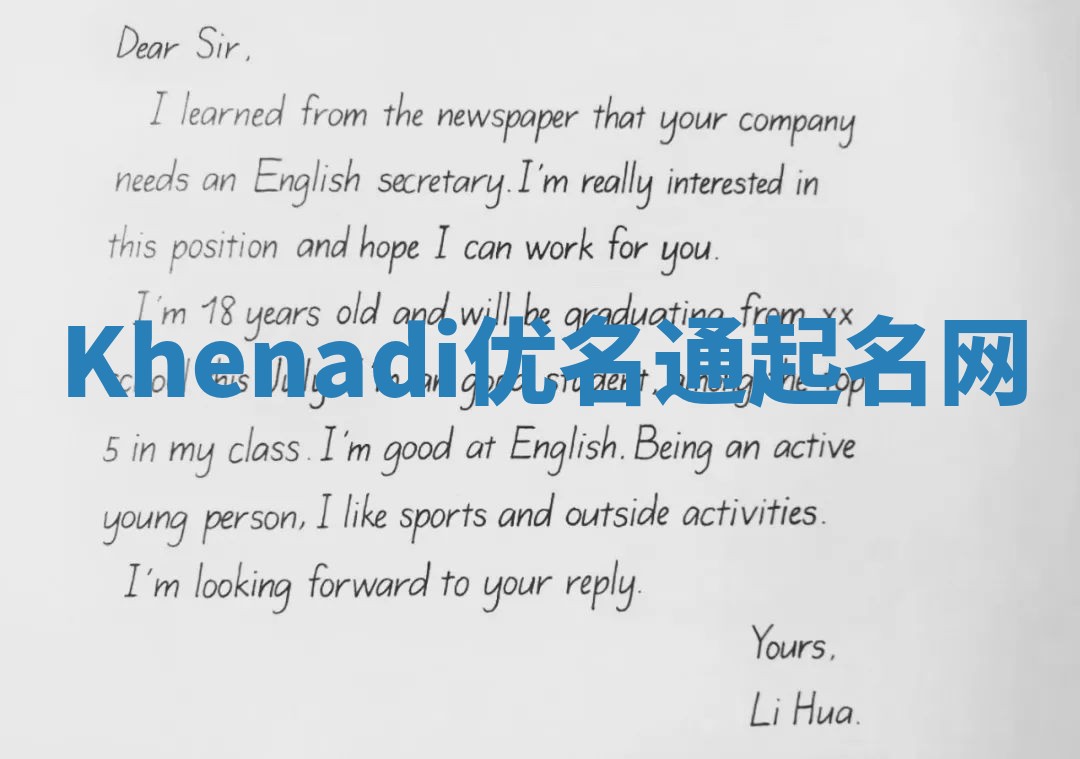 Dear Sir,
I learned from the newspaper that your company
needs an English secretary. I'm really interested in
this position and hope I can work for you.
I'm 18 years old and will be graduating from xx
Khenadi优名通起名网
school this July. I'm a good student, among the top
5 in my class. I'm good at English. Being an active
young person, I like sports and outside activities.
I'm looking forward to your reply.
Yours,
Li Hua.